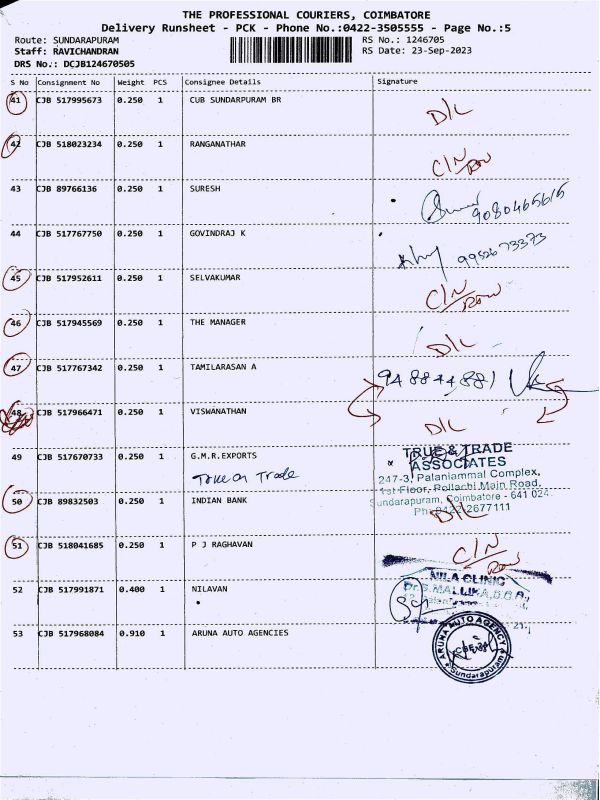 THE PROFESSIONAL COURIERS, COIMBATORE
Delivery Runsheet - PCK - Phone No.:0422-3505555 - Page No.:5
Route: SUNDARAPURAM RS No.: 1246705
Staff: RAVICHANDRAN RS Date: 23-Sep-2023
DRS No.: DCJB124670505
S No Consignment No Weight PCS Consignee Details Signature
41 CJB 517995673 0.250 1 CUB SUNDARPURAM BR D/L
42 CJB 518023234 0.250 1 RANGANATHAR C/N Row
43 CJB 89766136 0.250 1 SURESH 9080465615
44 CJB 517767750 0.250 1 GOVINDRAJ K 9952673373
45 CJB 517952611 0.250 1 SELVAKUMAR C/N Row
46 CJB 517945569 0.250 1 THE MANAGER D/L
47 CJB 517767342 0.250 1 TAMILARASAN A
48 CJB 517966471 0.250 1 VISWANATHAN D/L
49 CJB 517670733 0.250 1 G.M.R.EXPORTS
True on Trade
TRUE & TRADE
ASSOCIATES
247-3, Palaniammal Complex,
1st Floor, Pollachi Main Road,
Sundarapuram, Coimbatore - 641 024.
Ph: 0422 2677111
50 CJB 89832503 0.250 1 INDIAN BANK D/L
51 CJB 518041685 0.250 1 P J RAGHAVAN C/N Row
52 CJB 517991871 0.400 1 NILAVAN
NILA CLINIC
Dr.S.MALLIKA,
53 CJB 517968084 0.910 1 ARUNA AUTO AGENCIES
ARUNA AUTO AGENCY
Sundarapuram